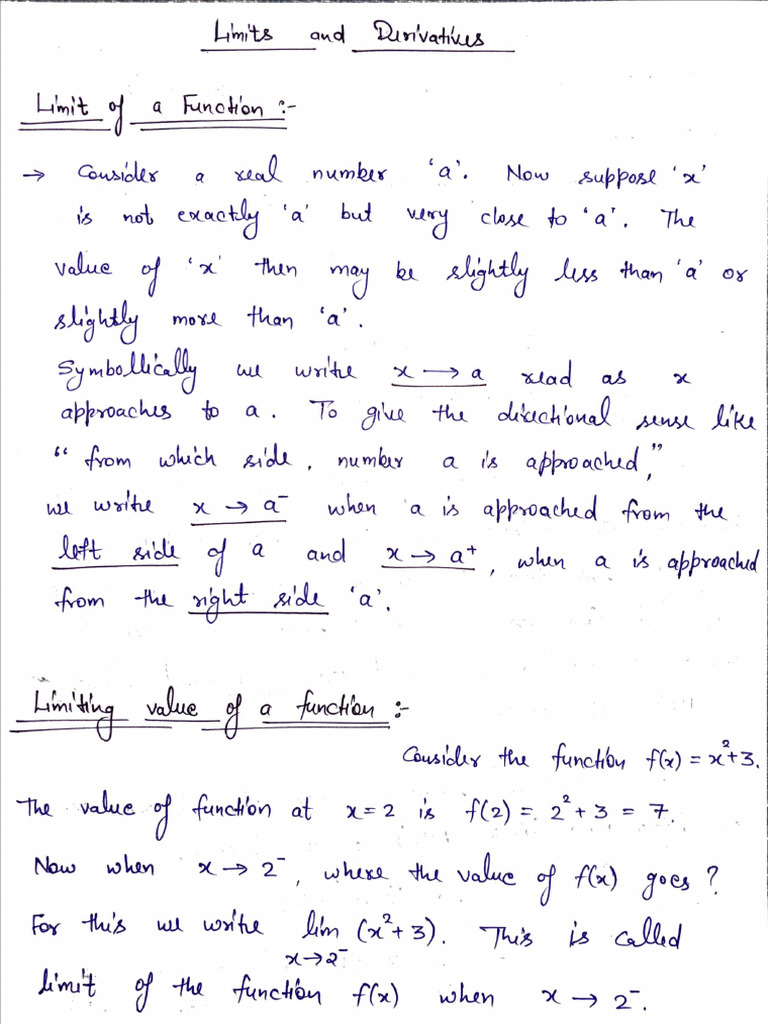 Limits and Derivatives
Limit of a Function :-
→ Consider a real number 'a'. Now suppose 'x'
is not exactly 'a' but very close to 'a'. The
value of 'x' then may be slightly less than 'a' or
slightly more than 'a'.
Symbollically we write x → a read as x
approaches to a. To give the directional sense like
“ from which side, number a is approached,”
we write x → a⁻ when a is approached from the
left side of a and x → a⁺, when a is approached
from the right side 'a'.
Limiting value of a function :-
Consider the function f(x) = x²+3.
The value of function at x=2 is f(2) = 2²+3 = 7.
Now when x → 2⁻, where the value of f(x) goes?
For this we write lim (x²+3). This is called
x→2⁻
limit of the function f(x) when x → 2⁻.